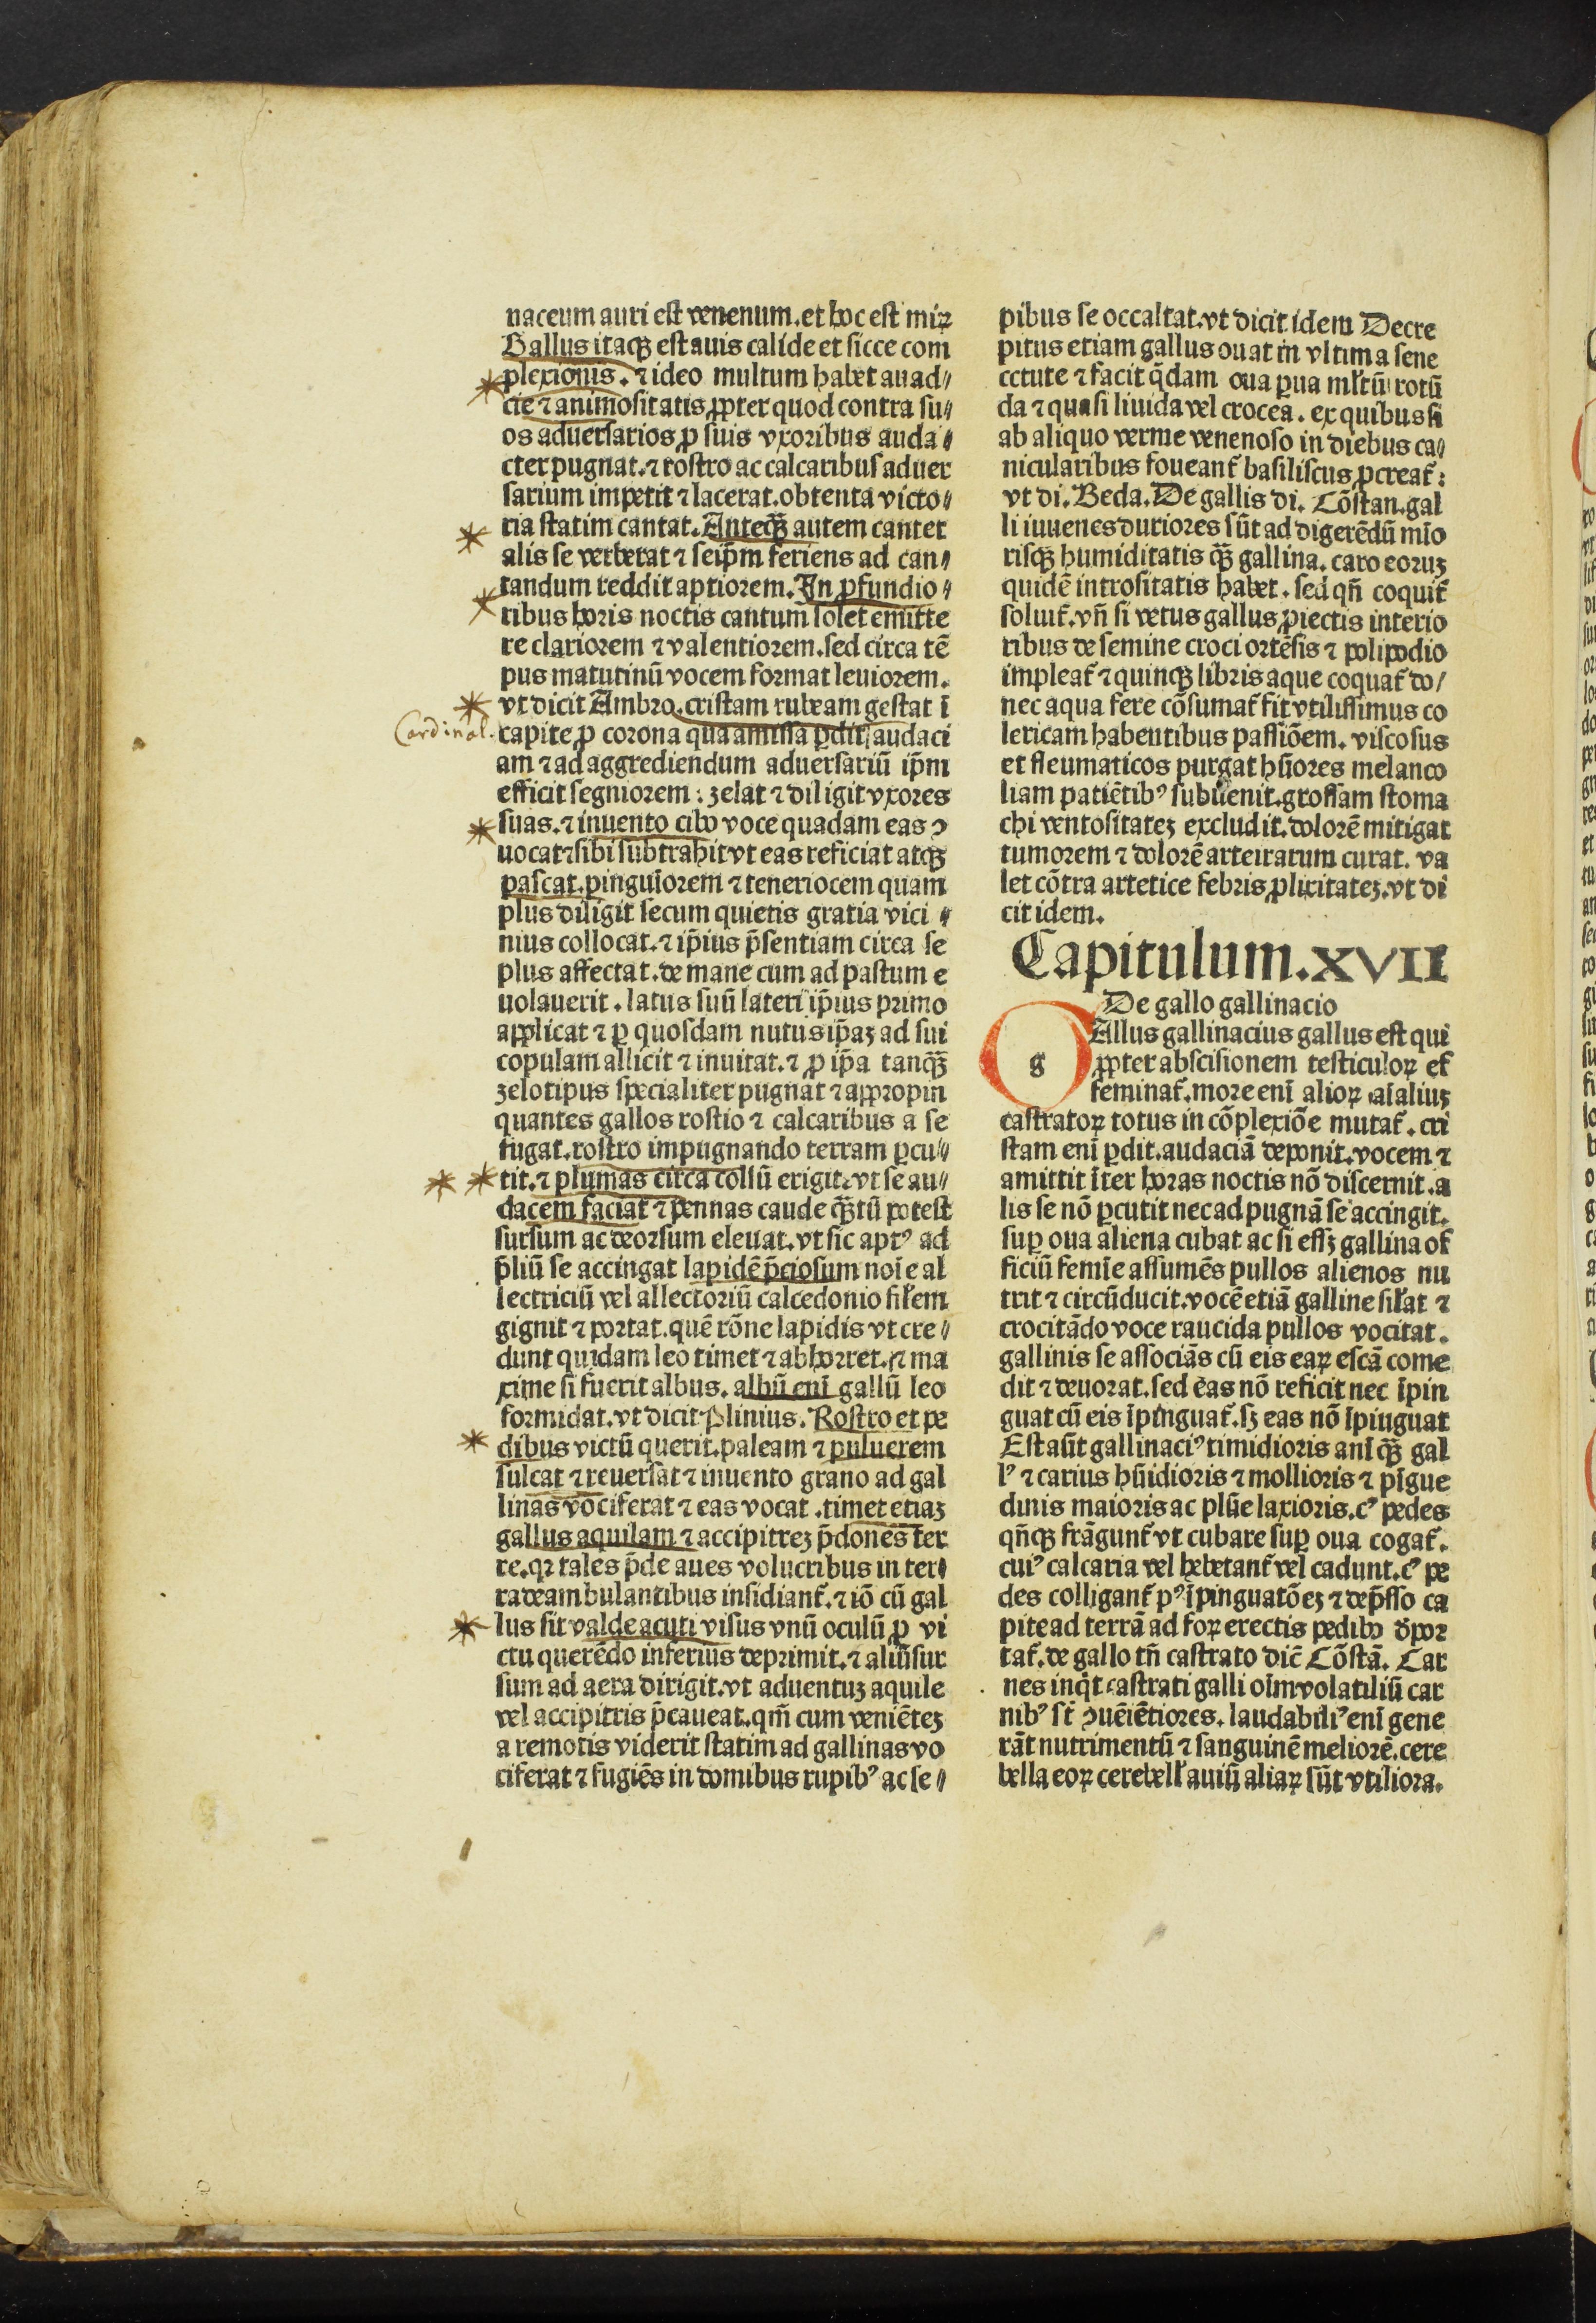 naceum auri est venenum. et hoc est miꝝ
Gallus itaqꝫ est auis calide et sicce com
plexionis. ⁊ ideo multum habet auad⸗
cie ⁊ animositatis ꝓpter quod contra su⸗
os aduersarios ꝓ suis vxoribus auda⸗
cter pugnat. ⁊ rostro ac calcaribus aduer
sarium impetit ⁊ lacerat. obtenta victo⸗
ria statim cantat. Anteqꝫ̄ autem cantet
alis se verberat ⁊ seip̄m feriens ad can⸗
tandum reddit aptiorem. In ꝓfundio⸗
ribus horis noctis cantum solet emitte
re clariorem ⁊ valentiorem. sed circa tē
pus matutinū vocem format leuiorem.
vt dicit Ambro. cristam rubeam gestat ī
Cardinal.
capite ꝓ corona qua amissa ꝑdit audaci
am ⁊ ad aggrediendum aduersariū ip̄m
efficit segniorem: zelat ⁊ diligit vxores
suas. ⁊ inuento cibo voce quadam eas ꝯ
uocat ⁊ sibi subtrahit vt eas reficiat atqꝫ
pascat. pinguiorem ⁊ teneriocem quam
plus diligit secum quietis gratia vici⸗
nius collocat. ⁊ ip̄ius p̄sentiam circa se
plus affectat. de mane cum ad pastum e
uolauerit. latus suū lateri ip̄ius primo
applicat ⁊ ꝑ quosdam nutus ip̄aꝫ ad sui
copulam allicit ⁊ inuitat. ⁊ ꝓ ip̄a tanqꝫ̄
zelotipus specialiter pugnat ⁊ appropin
quantes gallos rostio ⁊ calcaribus a se
fugat. rostro impugnando terram ꝑcu⸗
tit. ⁊ plumas circa collū erigit. vt se au⸗
dacem faciat ⁊ pennas caude qꝫ̄tū potest
sursum ac deorsum eleuat. vt sic aptꝰ ad
p̄liū se accingat lapidē p̄ciosum noīe al
lectriciū vel allectoriū calcedonio sił'em
gignit ⁊ portat. quē rōne lapidis vt cre⸗
dunt quidam leo timet ⁊ abhorret. ⁊ ma
xime si fuerit albus. albū enī gallū leo
formidat. vt dicit Plinius. Rostro et pe
dibus victū querit. paleam ⁊ puluerem
sulcat ⁊ reuersat ⁊ inuento grano ad gal
linas vociferat ⁊ eas vocat. timet etiaꝫ
gallus aquilam ⁊ accipitreꝫ p̄dones ter
re. qꝛ tales p̄de aues volucribus in ter⸗
ra deambulantibus insidiant᷑. ⁊ iō cū gal
lus sit valde acuti visus vnū oculū ꝓ vi
ctu querēdo inferius deprimit. ⁊ aliū sur
sum ad aera dirigit. vt aduentuꝫ aquile
vel accipitris p̄caueat. qm̄ cum veniēteꝫ
a remotis viderit statim ad gallinas vo
ciferat ⁊ fugiēs in domibus rupibꝰ ac se⸗
pibus se occaltat. vt dicit idem Decre
pitus etiam gallus ouat in vltima sene
cctute ⁊ facit q̄dam oua ꝑua mł'tū rotū
da ⁊ quasi liuida vel crocea. ex quibus si
ab aliquo verme venenoso in diebus ca⸗
nicularibus foueant᷑ basiliscus ꝓcreat᷑:
vt di. Beda. De gallis di. Cōstan. gal
li iuuenes duriores sūt ad digerēdū mīo
risqꝫ humiditatis qꝫ̄ gallina. caro eoruꝫ
quidē intrositatis habet. sed qn̄ coquit᷑
soluit᷑. vn̄ si vetus gallus ꝓiectis interio
ribus de semine croci ortēsis ⁊ polipodio
impleat᷑ ⁊ quinqꝫ libris aque coquat᷑ do/
nec aqua fere cōsumat᷑ fit vtilissimus co
lericam habentibus passiōem. viscosus
et fleumaticos purgat hūores melanco
liam patiētibꝰ subuenit. grossam stoma
chi ventositateꝫ excludit. dolorē mitigat
tumorem ⁊ dolorē arteirarum curat. va
let cōtra artetice febris ꝓlixitateꝫ. vt di
cit idem.
Capitulum. XVII
De gallo gallinacio
g Allus gallinacius gallus est qui
ꝓpter abscisionem testiculoꝝ ef
feminat᷑. more enī alioꝝ aīaliuꝫ
castratoꝝ totus in cōplexiōe mutat᷑. cri
stam enī ꝑdit. audaciā deponit. vocem ⁊
amittit īter horas noctis nō discernit. a
lis se nō ꝑcutit nec ad pugnā se accingit.
suꝑ oua aliena cubat ac si eſſꝫ gallina of
ficiū femīe assumēs pullos alienos nu
trit ⁊ circūducit. vocē etiā galline sił'at ⁊
crocitādo voce raucida pullos vocitat.
gallinis se associās cū eis eaꝝ escā come
dit ⁊ deuorat. sed eas nō reficit nec īpin
guat cū eis īpinguat᷑. sꝫ eas nō īpiuguat
Est aūt gallinaciꝰ timidioris anī qꝫ̄ gal
lꝰ ⁊ carius hūidioris ⁊ mollioris ⁊ pīgue
dinis maioris ac plūe laxioris. cꝰ pedes
qn̄qꝫ frāgunt᷑ vt cubare suꝑ oua cogat᷑.
cuiꝰ calcaria vel hebetant᷑ vel cadunt. cꝰ pe
des colligant᷑ pꝰ īpinguatōeꝫ ⁊ dep̄sso ca
pite ad terrā ad foꝝ erectis pedibo depor
tat᷑. de gallo tn̄ castrato dic̄ Cōstā. Car
nes inq̄t castrati galli oīm volatiliū car
nibꝰ st̄ ꝯuēiētiores. laudabiliꝰ enī gene
rāt nutrimentū ⁊ sanguinē meliorē. cere
bella eoꝝ cerebell' auiū aliaꝝ sūt vtiliora.